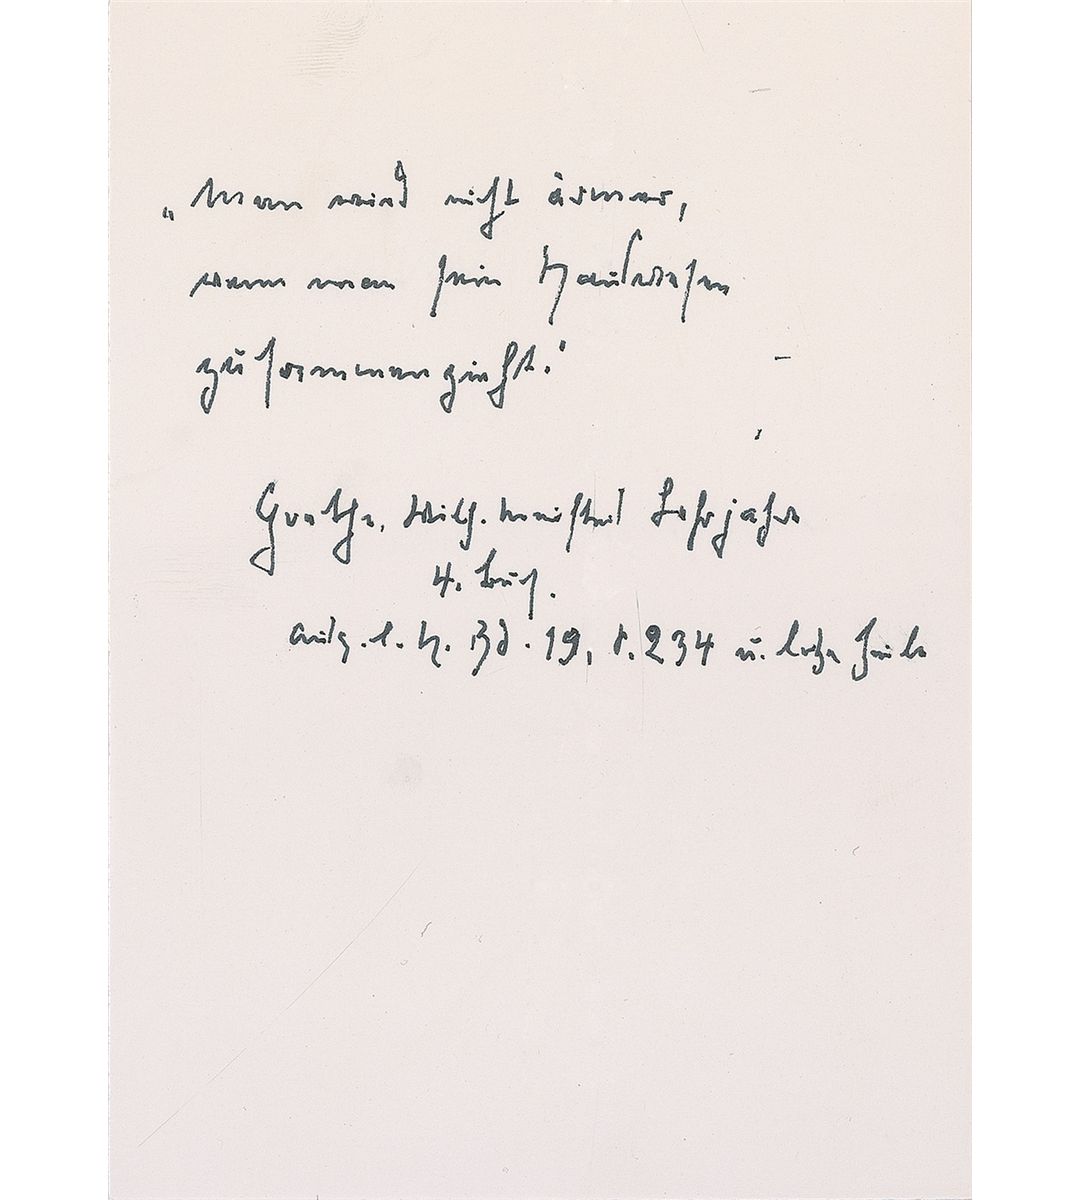 „Man wird nicht ärmer,
wenn man sein Hauswesen
zusammenzieht.“
Goethe, Wilh. Meisters Lehrjahre
4. Buch.
Ausg. l. H. Bd. 19, S. 234 u. letzte Zeile